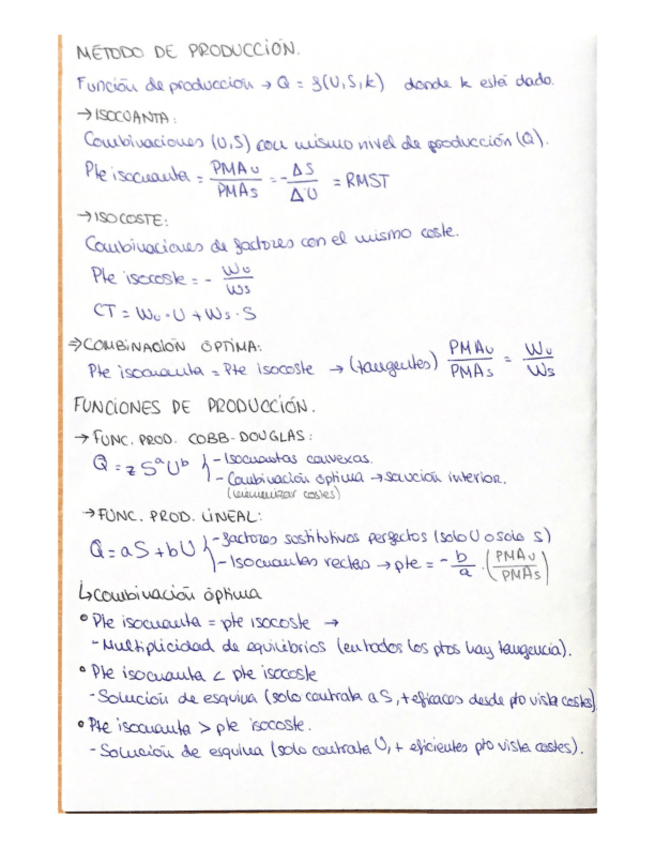 MÉTODO DE PRODUCCIÓN.
Función de producción → Q = f(U,S,k) donde k está dado.
→ ISOCUANTA:
Combinaciones (U,S) con mismo nivel de producción (Q).
Pte isocuanta = PMAU/PMAS = -ΔS/ΔU = RMST
→ ISOCOSTE:
Combinaciones de factores con el mismo coste.
Pte isocoste = - Wu/Ws
CT = Wu·U + Ws·S
→ COMBINACIÓN ÓPTIMA:
Pte isocuanta = Pte isocoste → (tangentes) PMAU/PMAS = Wu/Ws
FUNCIONES DE PRODUCCIÓN.
→ FUNC. PROD. COBB-DOUGLAS:
Q = z SᵃUᵇ
- Isocuantas convexas.
- Combinación óptima → soución interior.
(minimizar costes)
→ FUNC. PROD. LINEAL:
Q = aS + bU
- factores sostitutivos perfectos (solo U o solo S)
- Isocuantas rectas → pte = - b/a · (PMAU/PMAS)
↳ combinación óptima
• Pte isocuanta = pte isocoste →
- Multiplicidad de equilibrios (en todos los ptos hay tangencia).
• Pte isocuanta < pte isocoste
- Solución de esquina (solo contrata a S, + eficaces desde pto vista costes)
• Pte isocuanta > pte isocoste.
- Solución de esquina (solo contrata U, + eficientes pto vista costes).